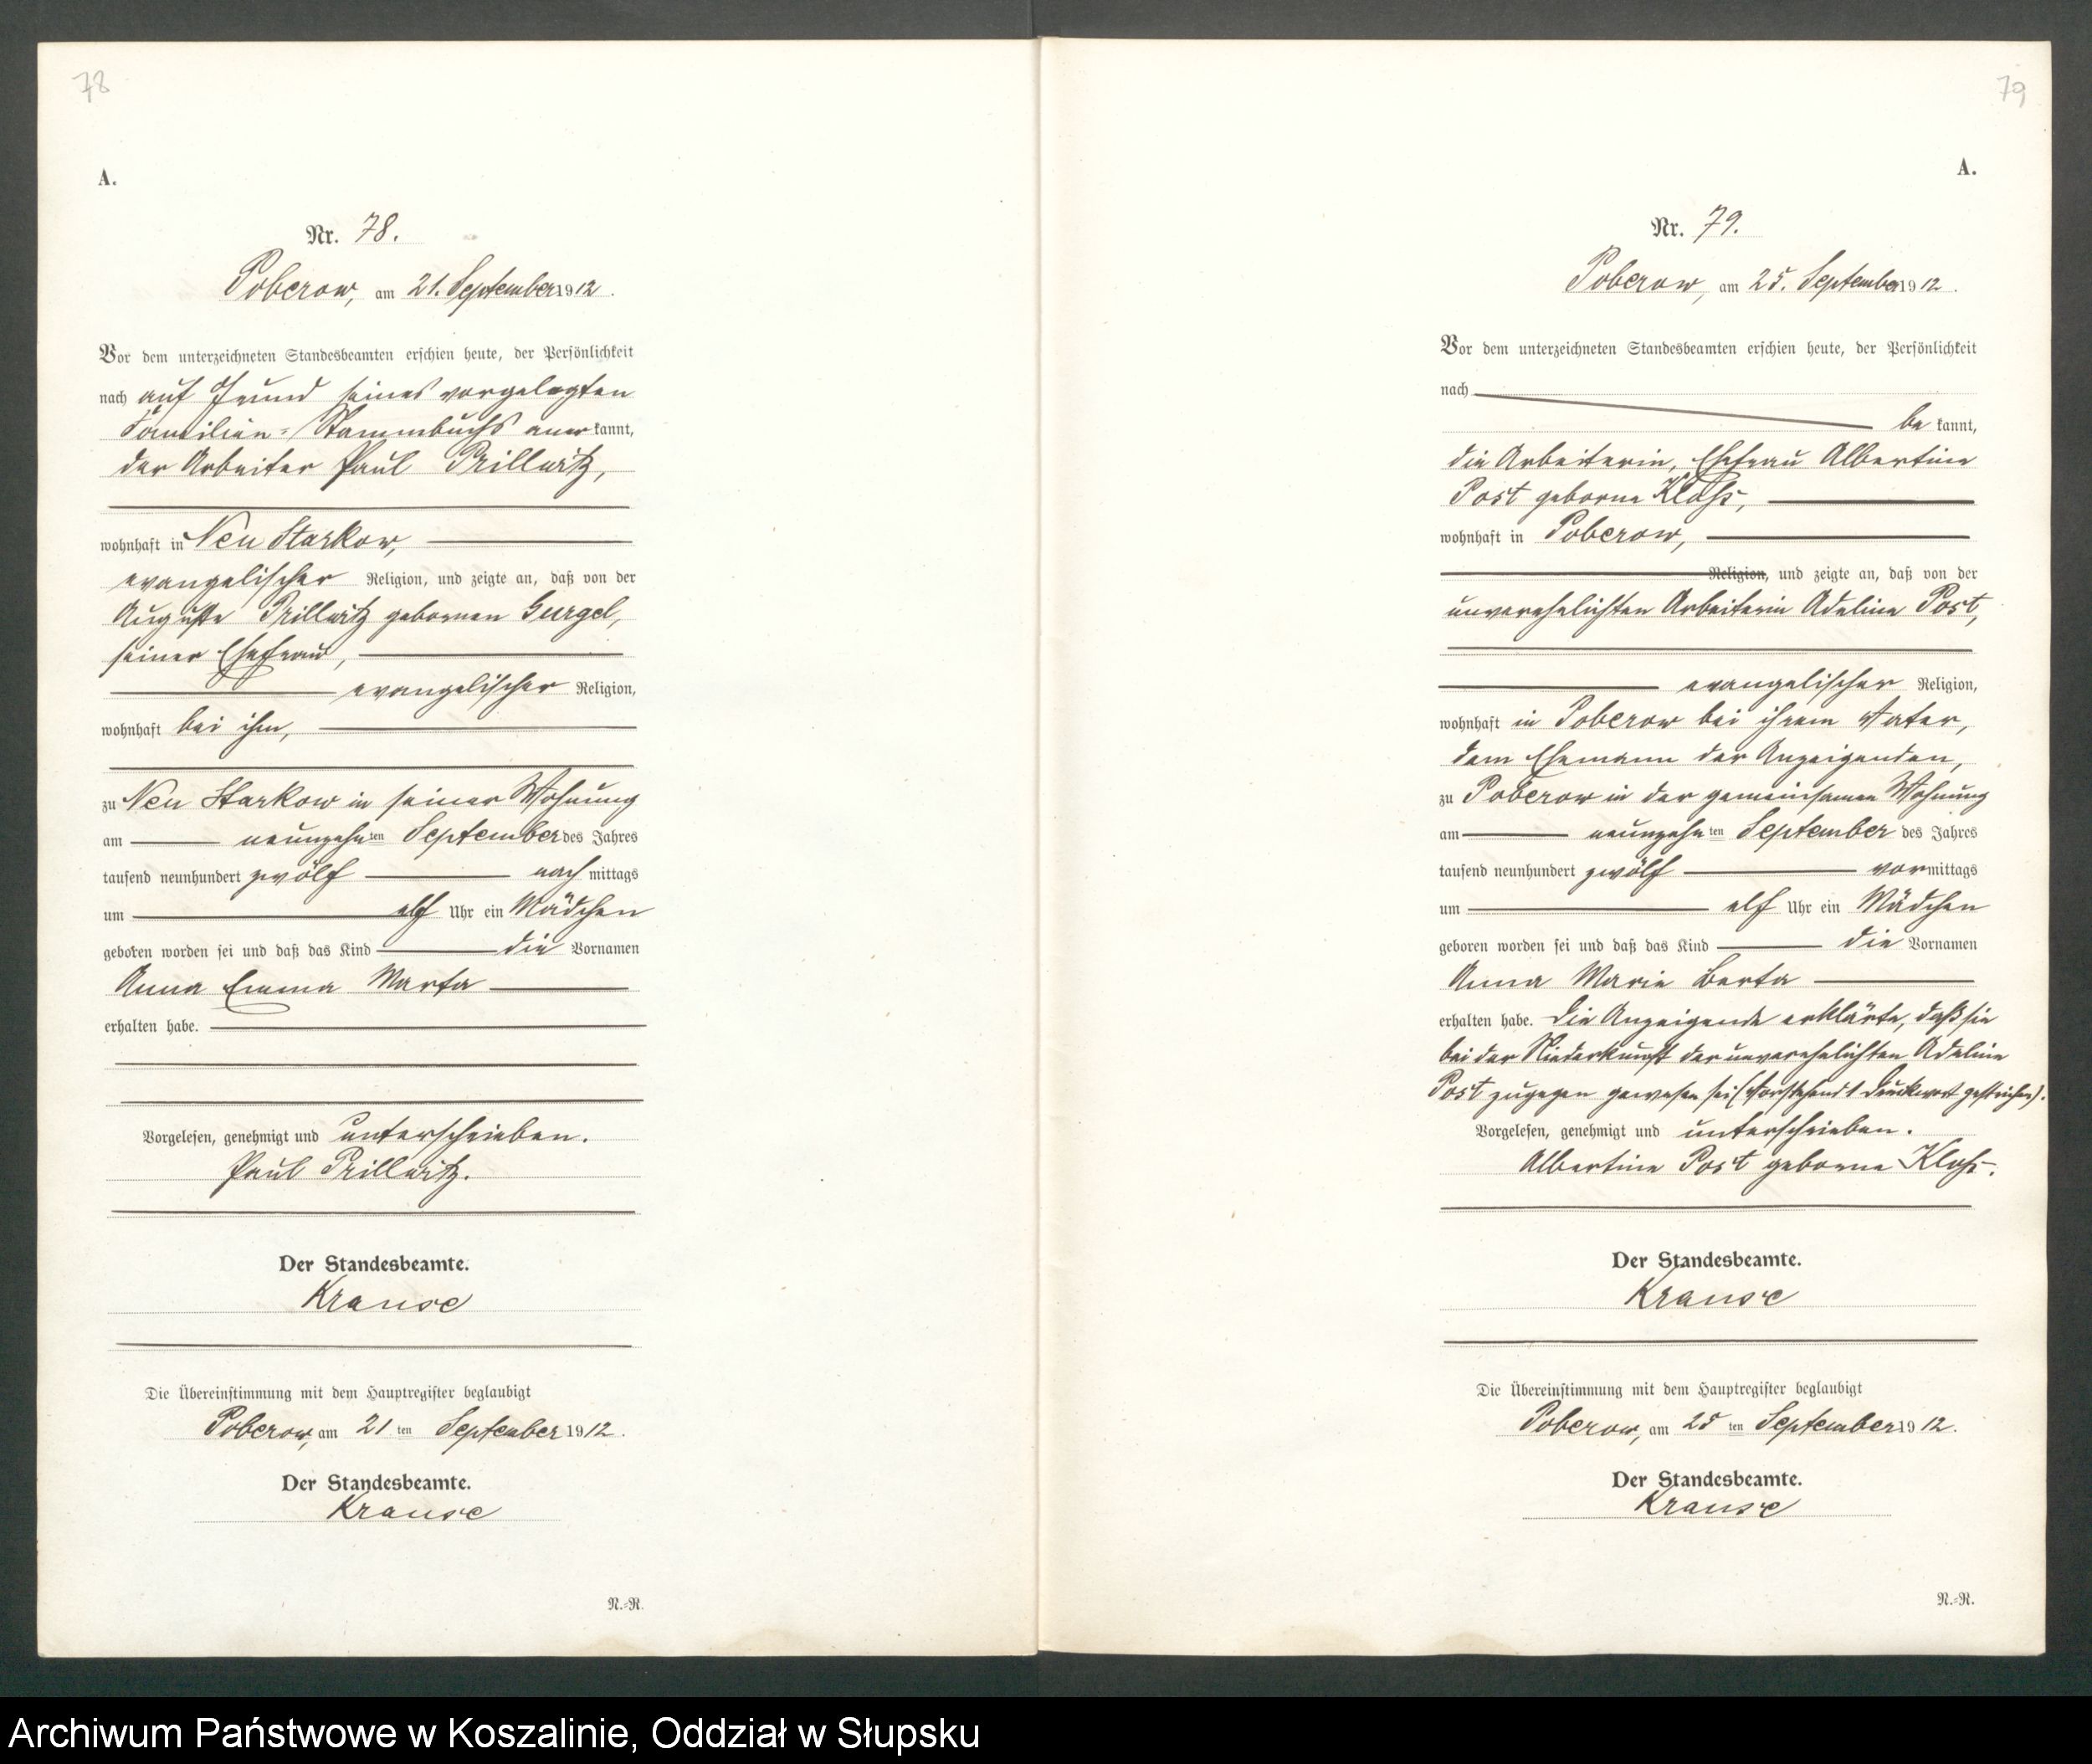 78
A.
Nr. 78.
Poberow, am 21. September 1912.
Vor dem unterzeichneten Standesbeamten erschien heute, der Persönlichkeit
nach auf Grund seines vorgelegten
Familien-Stammbuchs aner kannt,
der Arbeiter Paul Prillwitz,
wohnhaft in Neu Starkow,
evangelischer Religion, und zeigte an, daß von der
Auguste Prillwitz gebornen Gurgel,
seiner Ehefrau,
evangelischer Religion,
wohnhaft bei ihm,
zu Neu Starkow in seiner Wohnung
am neunzehnten September des Jahres
tausend neunhundert zwölf nach mittags
um elf Uhr ein Mädchen
geboren worden sei und daß das Kind die Vornamen
Anna Emma Marta
erhalten habe.
Vorgelesen, genehmigt und unterschrieben.
Paul Prillwitz.
Der Standesbeamte.
Krause
Die Übereinstimmung mit dem Hauptregister beglaubigt
Poberow, am 21 ten September 1912.
Der Standesbeamte.
Krause
N.-R.
79
A.
Nr. 79.
Poberow, am 25. September 1912.
Vor dem unterzeichneten Standesbeamten erschien heute, der Persönlichkeit
nach
be kannt,
die Arbeiterin, Ehefrau Albertine
Post geborne Kloß,
wohnhaft in Poberow,
Religion, und zeigte an, daß von der
unverehelichten Arbeiterin Adeline Post,
evangelischer Religion,
wohnhaft in Poberow bei ihrem Vater,
dem Ehemann der Anzeigenden,
zu Poberow in der gemeinsamen Wohnung
am neunzehnten September des Jahres
tausend neunhundert zwölf vormittags
um elf Uhr ein Mädchen
geboren worden sei und daß das Kind die Vornamen
Anna Marie Berta
erhalten habe. Die Anzeigende erklärte, daß sie
bei der Niederkunft der unverehelichten Adeline
Post zugegen gewesen sei (Vorstehend 1 Druckwort gestrichen).
Vorgelesen, genehmigt und unterschrieben.
Albertine Post geborne Kloß.
Der Standesbeamte.
Krause
Die Übereinstimmung mit dem Hauptregister beglaubigt
Poberow, am 25 ten September 1912.
Der Standesbeamte.
Krause
N.-R.
Archiwum Państwowe w Koszalinie, Oddział w Słupsku